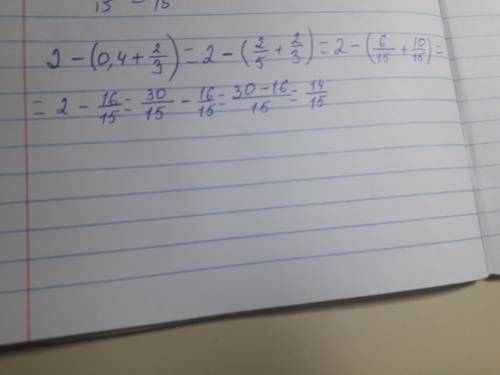 15 - 15
2 - (0,4 + 2/3) = 2 - (2/5 + 2/3) = 2 - (6/15 + 10/15) =
= 2 - 16/15 = 30/15 - 16/15 = 30-16/15 = 14/15